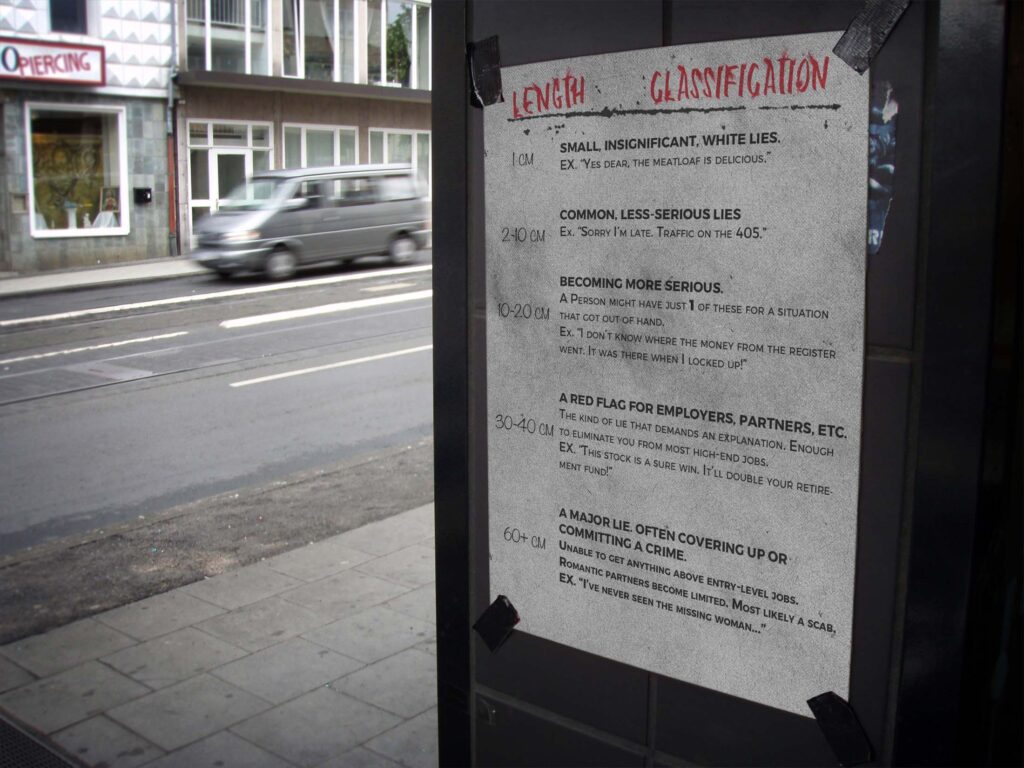 O PIERCING
LENGTH CLASSIFICATION
1 CM
SMALL, INSIGNIFICANT, WHITE LIES.
EX. "YES DEAR, THE MEATLOAF IS DELICIOUS."
2-10 CM
COMMON, LESS-SERIOUS LIES
EX. "SORRY I'M LATE. TRAFFIC ON THE 405."
10-20 CM
BECOMING MORE SERIOUS.
A PERSON MIGHT HAVE JUST 1 OF THESE FOR A SITUATION
THAT GOT OUT OF HAND.
EX. "I DON'T KNOW WHERE THE MONEY FROM THE REGISTER
WENT. IT WAS THERE WHEN I LOCKED UP!"
30-40 CM
A RED FLAG FOR EMPLOYERS, PARTNERS, ETC.
THE KIND OF LIE THAT DEMANDS AN EXPLANATION. ENOUGH
TO ELIMINATE YOU FROM MOST HIGH-END JOBS.
EX. "THIS STOCK IS A SURE WIN. IT'LL DOUBLE YOUR RETIRE-
MENT FUND!"
60+ CM
A MAJOR LIE. OFTEN COVERING UP OR
COMMITTING A CRIME.
UNABLE TO GET ANYTHING ABOVE ENTRY-LEVEL JOBS.
ROMANTIC PARTNERS BECOME LIMITED. MOST LIKELY A SCAB.
EX. "I'VE NEVER SEEN THE MISSING WOMAN..."